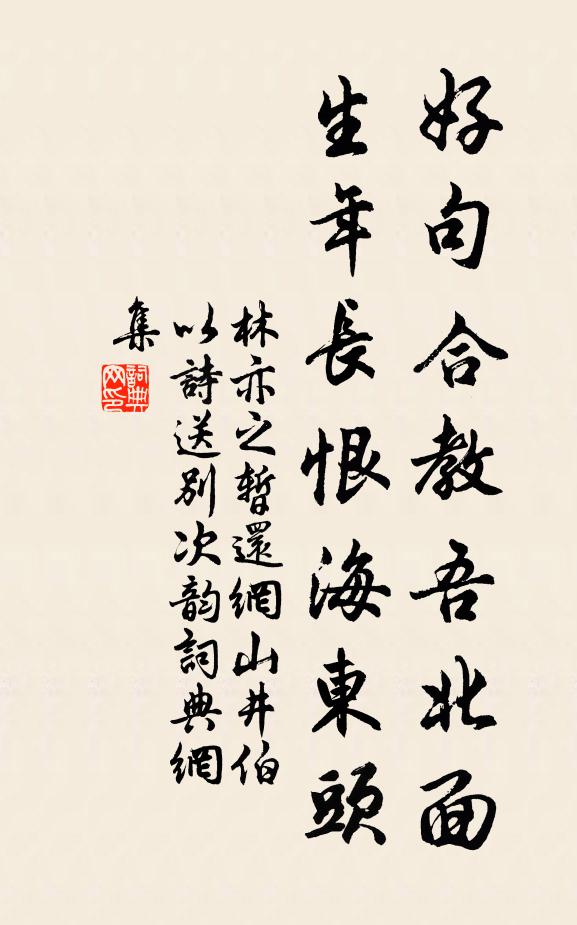 好句合教吾北面
生年長恨海東頭
林亦之暫還網山井伯
以詩送别次韵詞典網
集
詞典
网印